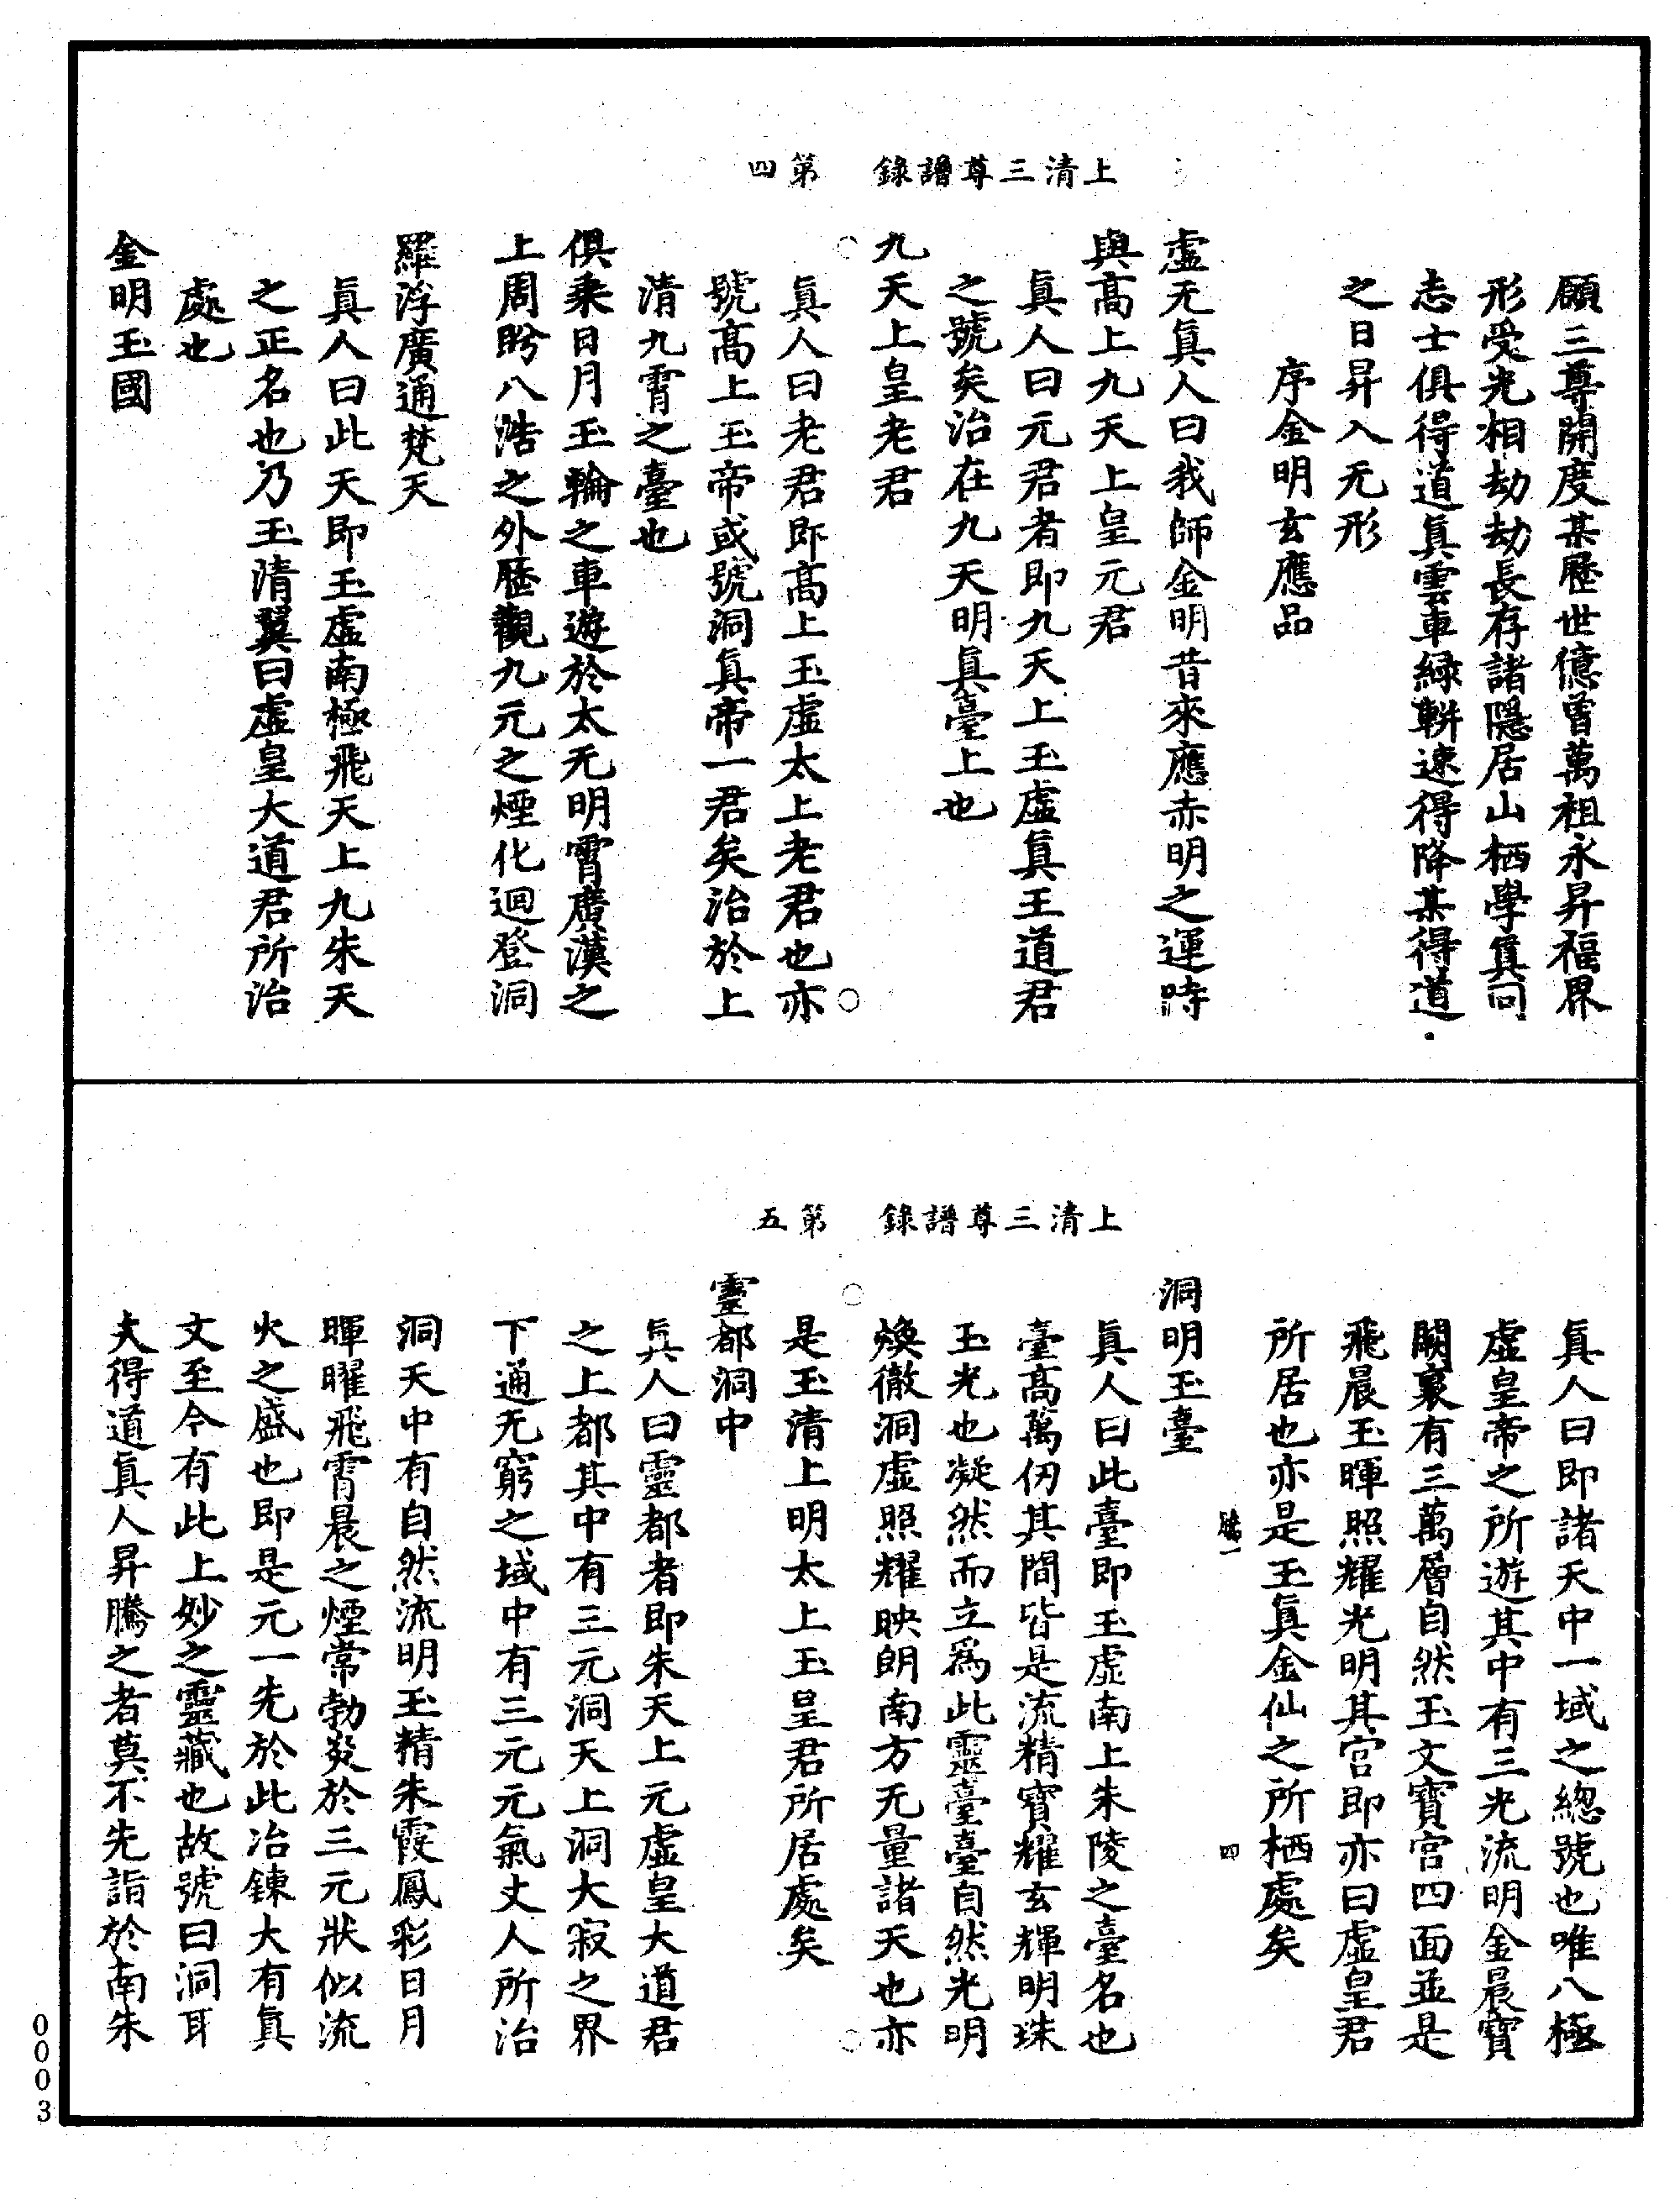 上清三尊譜錄　第四
願三尊開度某歷世億曾萬祖永昇福界
形受光相劫劫長存諸隱居山栖學真同
志士俱得道真雲車綠軿速得降某得道
之日昇入无形
序金明玄應品
虛无真人曰我師金明昔來應赤明之運時
與高上九天上皇元君
真人曰元君者即九天上玉虛真王道君
之號矣治在九天明真臺上也
九天上皇老君
真人曰老君即高上玉虛太上老君也亦
號高上玉帝或號洞真帝一君矣治於上
清九霄之臺也
俱乘日月玉輪之車遊於太无明霄廣漢之
上周眄八浩之外歷觀九元之煙化迴登洞
羅浮廣通梵天
真人曰此天即玉虛南極飛天上九朱天
之正名也乃玉清翼曰虛皇大道君所治
處也
金明玉國
上清三尊譜錄　第五
真人曰即諸天中一域之總號也唯八極
虛皇帝之所遊其中有三光流明金晨寶
闕裏有三萬層自然玉文寶宮四面並是
飛晨玉暉照耀光明其宮即亦曰虛皇君
所居也亦是玉真金仙之所栖處矣
一　四
洞明玉臺
真人曰此臺即玉虛南上朱陵之臺名也
臺高萬仞其間皆是流精寶耀玄輝明珠
玉光也凝然而立為此靈臺臺自然光明
煥徹洞虛照耀映朗南方无量諸天也亦
是玉清上明太上玉皇君所居處矣
靈都洞中
真人曰靈都者即朱天上元虛皇大道君
之上都其中有三元洞天上洞大寂之界
下通无窮之域中有三元元氣丈人所治
洞天中有自然流明玉精朱霞鳳彩日月
暉曜飛霄晨之煙常勃炎於三元狀似流
火之盛也即是元一先於此冶鍊大有真
文至今有此上妙之靈藏也故號曰洞耳
夫得道真人昇騰之者莫不先詣於南朱
0003